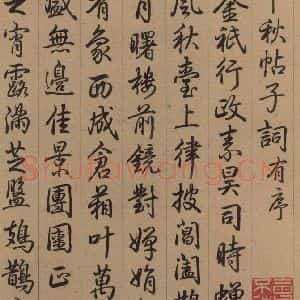 中秋帖子詞有序
金祇行政素昊司時
風秋臺上律披閶闔
月曙樓前鏡對嬋娟
有象西成倉箱叶萬
盛無邊佳景團圞正
之宵露滿芝盤鳷鵲
Shufawang.cn